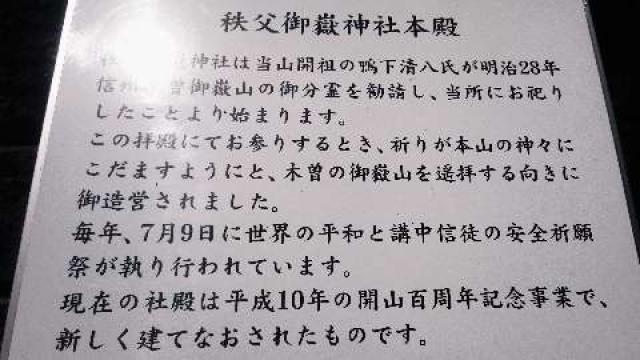 秩父御嶽神社本殿
神社は当山開祖の鴨下清八氏が明治28年
信 曽御嶽山の御分霊を勧請し、当所にお祀り
したことより始まります。
この拝殿にてお参りするとき、祈りが本山の神々に
こだますようにと、木曽の御嶽山を遥拝する向きに
御造営されました。
毎年、7月9日に世界の平和と講中信徒の安全祈願
祭が執り行われています。
現在の社殿は平成10年の開山百周年記念事業で、
新しく建てなおされたものです。